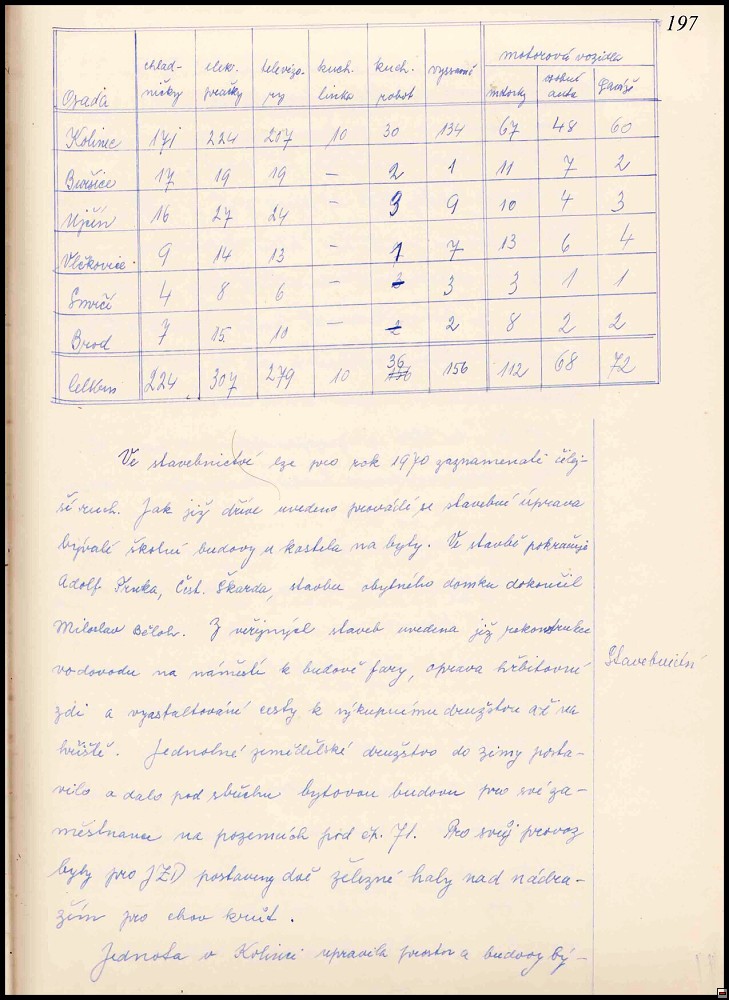 197
motorová vozidla
Osada chlad- elek. televizo- kuch. kuch. vysavače motorky osobní garáže
ničky pračky ry linka robot auta
Kolinec 171 224 207 10 30 134 67 48 60
Buršice 17 19 19 — 2 1 11 7 2
Ujčín 16 27 24 — 3 9 10 4 3
Vlčkovice 9 14 13 — 1 7 13 6 4
Smrčí 4 8 6 — 3 3 1 1
Brod 7 15 10 — 2 8 2 2
Celkem 224 307 279 10 36 156 112 68 72
Ve stavebnictví lze pro rok 1970 zaznamenati čilej-
ší ruch. Jak již dříve uvedeno provádí se stavební úprava
bývalé školní budovy u kostela na byty. Ve stavbě pokračuje
Adolf Trnka, Čst. Škarda, stavbu obytného domku dokončil
Miloslav Běloh. Z veřejných staveb uvedena již rekonstrukce
vodovodu na náměstí k budově fary, oprava hřbitovní
Stavebnictví
zdi a vyasfaltování cesty k výkupnímu družstvu až na
hřiště. Jednotné zemědělské družstvo do zimy posta-
vilo a dalo pod střechu bytovou budovu pro své za-
městnance na pozemcích pod čp. 71. Pro svůj provoz
byly pro JZD postaveny dvě železné haly nad nádra-
žím pro chov krůt.
Jednota v Kolinci upravila prostor a budovy bý-